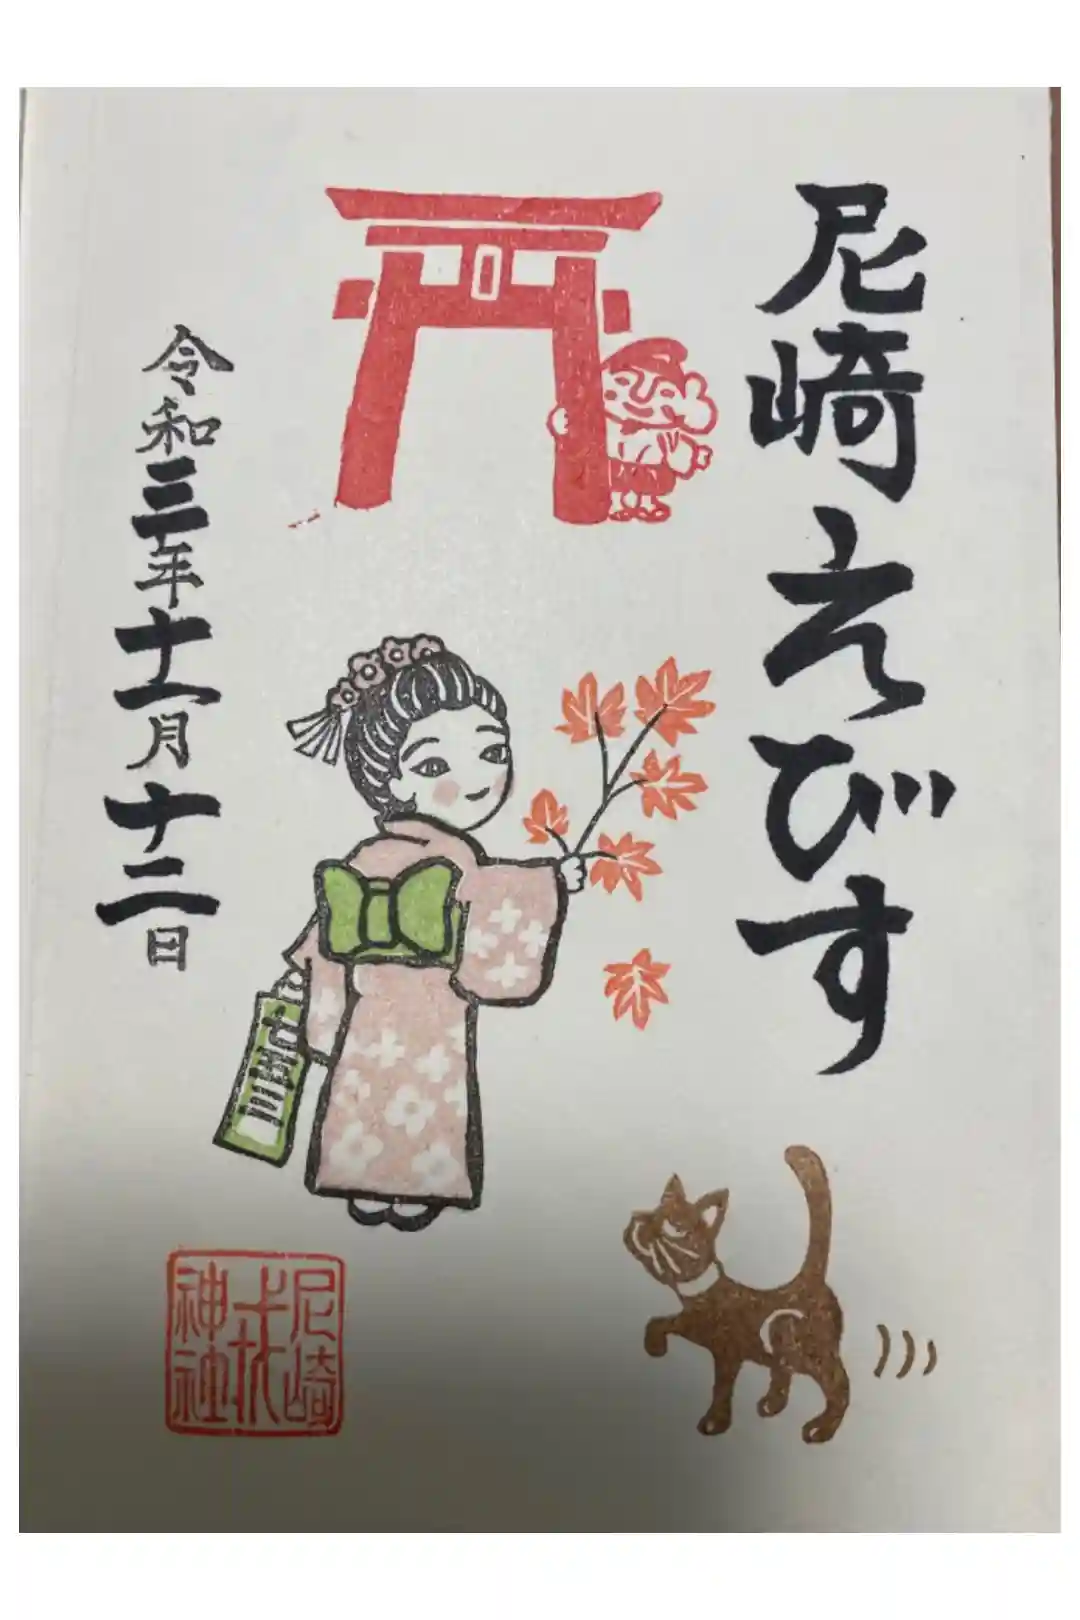 尼崎えびす
七五三
令和三年十一月十二日
尼崎
戎
神社